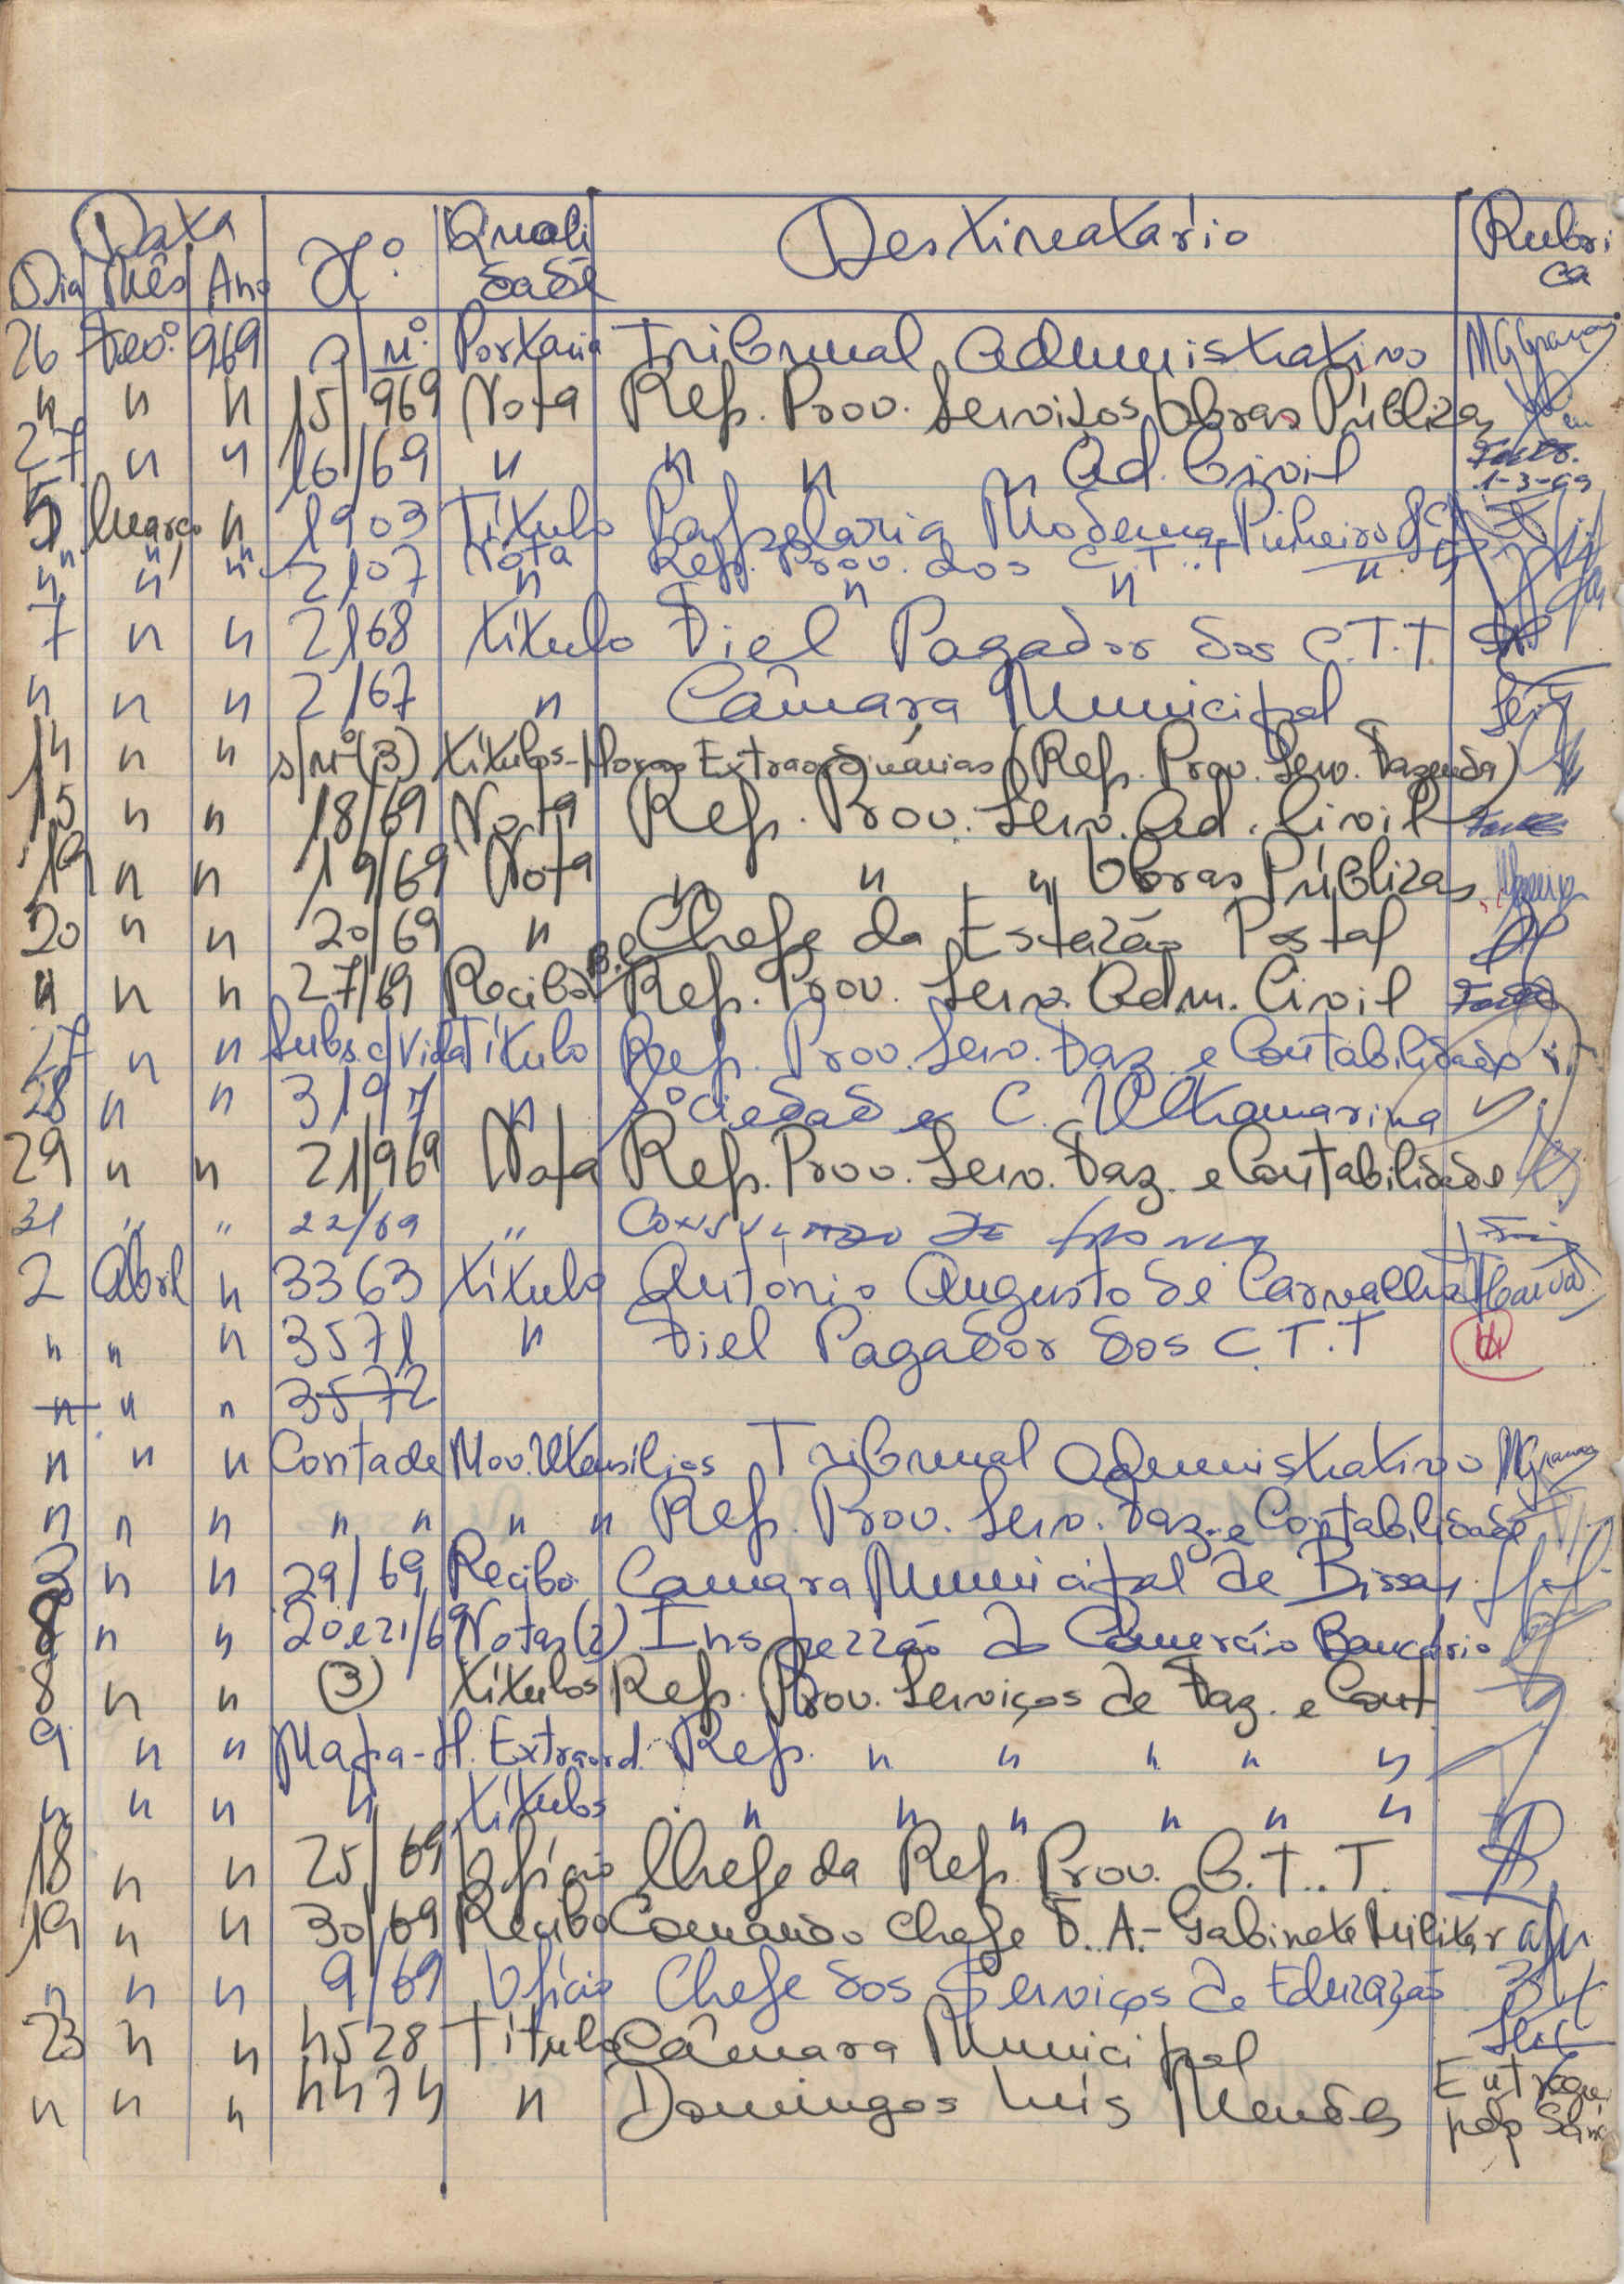 Data Nº Quali Destinatário Rubri
Dia Mês Ano dade ca
26 Fevº. 969 s/nº Portaria Tribunal Administrativo
" " " 15/969 Nota Rep. Prov. Serviços Obras Públicas
27 " " 16/69 " " " " Ad. Civil
1-3-69
5 Março " 1903 Título Papelaria Moderna, Pinheiro
" " " Nota Rep. Prov. dos C.T.T
" " " 2107 " " "
7 " " 2168 Título Fiel Pagador dos C.T.T.
" " " 2167 " Câmara Municipal
14 " " s/nº (3) Títulos - Horas Extraordinárias (Rep. Prov. Serv. Fazenda)
15 " " 18/69 Nota Rep. Prov. Serv. Ad. Civil
19 " " 19/69 Nota " " " Obras Públicas
20 " " 20/69 " Chefe da Estação Postal
" " " 27/69 Recibo Rep. Prov. Serv. Adm. Civil
27 " " Subs. c/Vida Título Rep. Prov. Serv. Faz. e Contabilidade
28 " " 3197 " Sociedade C. Ultramarina
29 " " 21/969 Nota Rep. Prov. Serv. Faz. e Contabilidade
31 " " 22/69 "
2 Abril " 3363 Título António Augusto de Carvalho
" " " 3571 " Fiel Pagador dos C.T.T
" " " 3572
" " " Conta de Mov. Utensílios Tribunal Administrativo
" " " " " " " Rep. Prov. Serv. Faz. e Contabilidade
2 " " 29/69 Recibo Camara Municipal de Bissau
8 " " 20 e 21/69 Notas (2) Inspecção do Comércio Bancário
8 " " (3) Títulos Rep. Prov. Serviços de Faz. e Cont
9 " " Mapa - H. Extraord. Rep. " " " " "
" " " " Títulos " " " " " "
18 " " 25/69 Ofício Chefe da Rep. Prov. C.T.T.
19 " " 30/69 Recibo Comando Chefe F. A. - Gabinete Militar
" " " 9/69 Ofício Chefe dos Serviços de Educação
23 " " 4528 Título Câmara Municipal
" " " 4474 " Domingos Luís Mendes Entregue
pelo